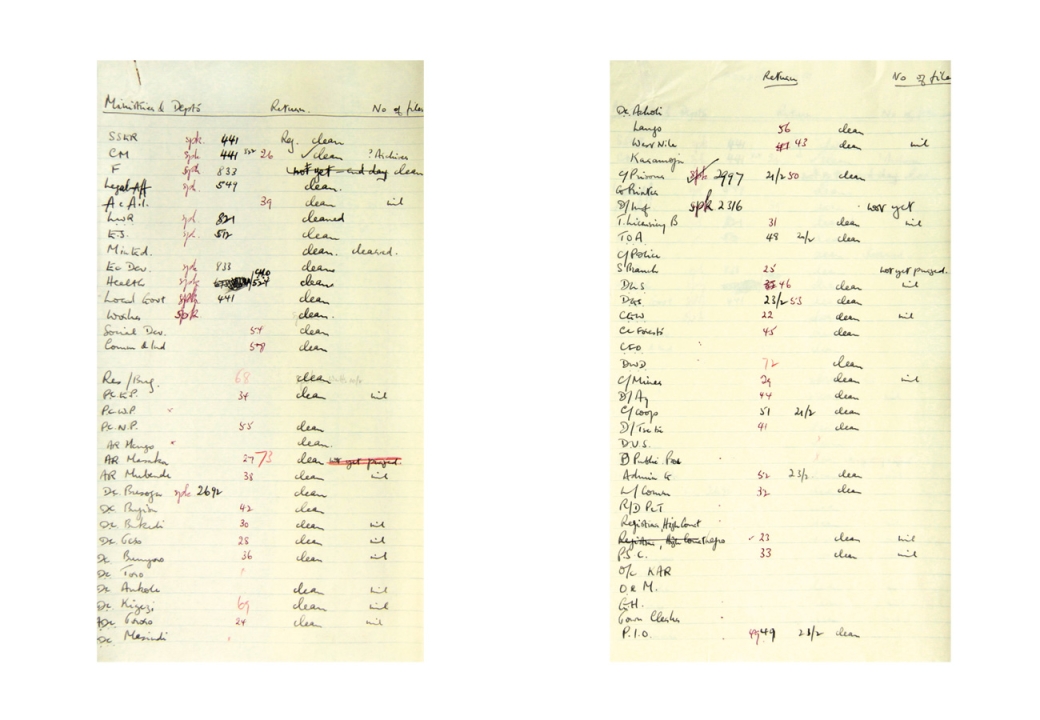 Ministries & Depts Return. No of files
SSKR spk. 441 Reg. clean
CM spk 441 26 clean ? Archives
F spk 833 not yet - end day clean
Legal Aff spk. 549 clean.
A & A.I. 39 clean nil
LWR spk. 821 cleaned
E.S. spk. 512 clean
Min Ed. clean. cleaned.
Ec Dev. spk 833 clean
Health spk 440/524 clean
Local Govt spk 441 clean
Works spk clean
Social Dev. 54 clean
Comm & Ind 578 clean
Res/Bug. 68 clean
P.C. E.P. 34 clean nil
P.C. W.P.
P.C. N.P. 55 clean
AR Mengo clean.
AR Masaka 27 73 clean not yet purged.
AR Mubende 38 clean nil
DC. Busoga spk 2692 clean
DC Bugisu 42 clean
DC Bukedi 30 clean nil
DC 28 clean nil
DC Bunyoro 36 clean nil
DC Toro
DC Ankole clean nil
DC. Kigezi 69 clean nil
DC 24 clean nil
DC Masindi
Return No of file
DC Acholi
Lango 56 clean
West Nile 43 clean nil
Karamoja
C/Prisons spk 2997 21/2 50 clean
G Printer
D/Inf spk 2316 not yet
T. Licensing B 31 clean nil
TOA 48 21/2 clean
C/Police
S Branch 25 not yet purged.
DLS 46 clean nil
23/2 53 clean
22 clean nil
CC Forests 45 clean
CEO
DWD 72 clean
C/Mines 29 clean nil
D/Ag 44 clean
C/Coops 51 21/2 clean
D/Tsetse 41 clean
D.V.S.
D Public Pros
Admin G 52 23/2 clean
L/Comm 32 clean
R/D P&T
Registrar, High Court
Registrar, High Court 23 clean nil
P.S.C. 33 clean nil
O/C KAR
O & M.
G.H.
Town Clerks
P.I.O. 49 49 23/2 clean